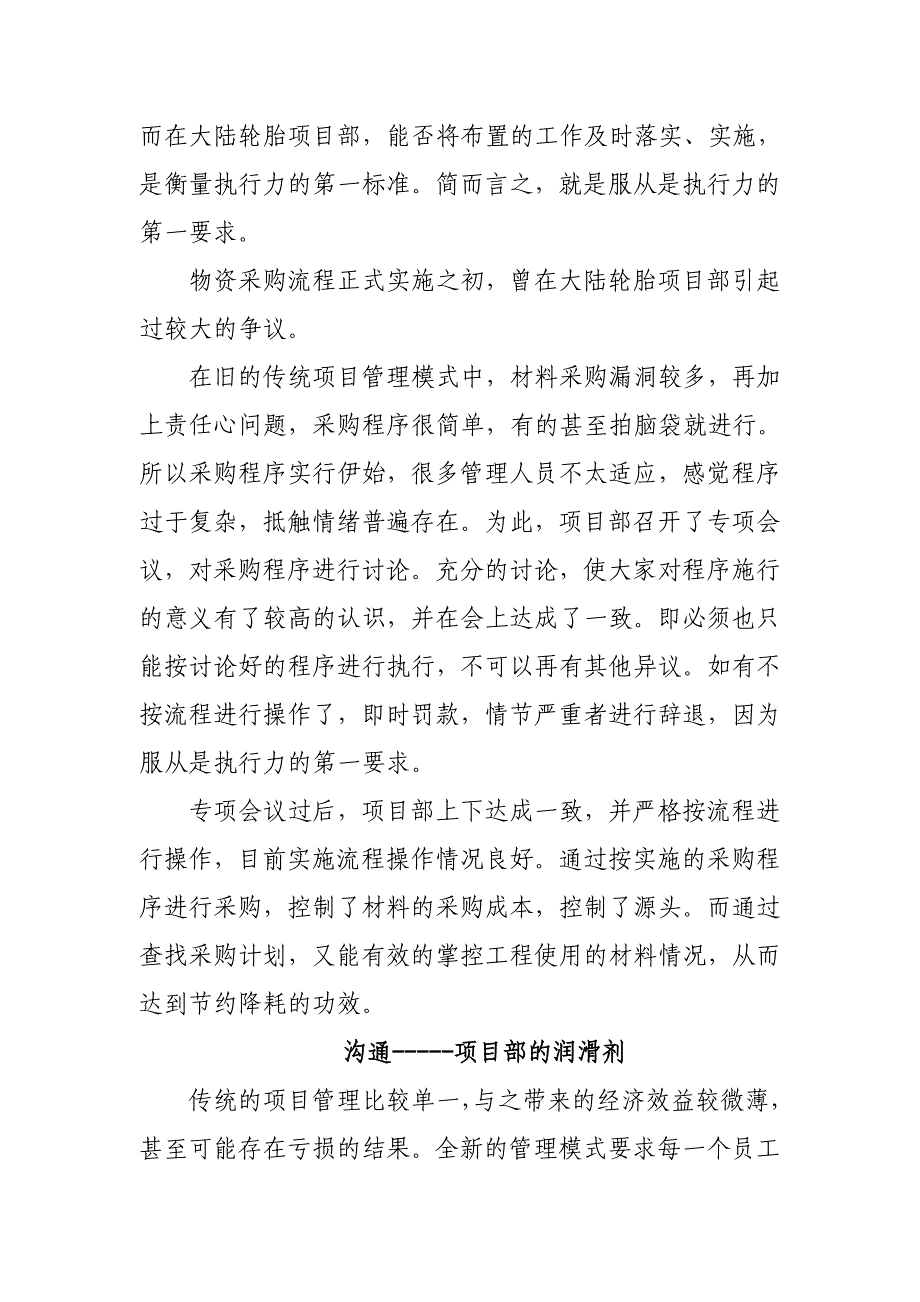 而在大陆轮胎项目部，能否将布置的工作及时落实、实施，
是衡量执行力的第一标准。简而言之，就是服从是执行力的
第一要求。
物资采购流程正式实施之初，曾在大陆轮胎项目部引起
过较大的争议。
在旧的传统项目管理模式中，材料采购漏洞较多，再加
上责任心问题，采购程序很简单，有的甚至拍脑袋就进行。
所以采购程序实行伊始，很多管理人员不太适应，感觉程序
过于复杂，抵触情绪普遍存在。为此，项目部召开了专项会
议，对采购程序进行讨论。充分的讨论，使大家对程序施行
的意义有了较高的认识，并在会上达成了一致。即必须也只
能按讨论好的程序进行执行，不可以再有其他异议。如有不
按流程进行操作了，即时罚款，情节严重者进行辞退，因为
服从是执行力的第一要求。
专项会议过后，项目部上下达成一致，并严格按流程进
行操作，目前实施流程操作情况良好。通过按实施的采购程
序进行采购，控制了材料的采购成本，控制了源头。而通过
查找采购计划，又能有效的掌控工程使用的材料情况，从而
达到节约降耗的功效。
沟通-----项目部的润滑剂
传统的项目管理比较单一，与之带来的经济效益较微薄，
甚至可能存在亏损的结果。全新的管理模式要求每一个员工